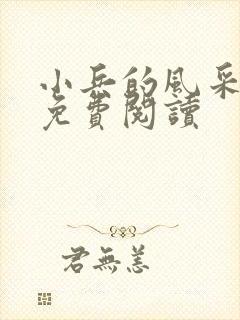 小兵的風采
免費閱讀
君無恙